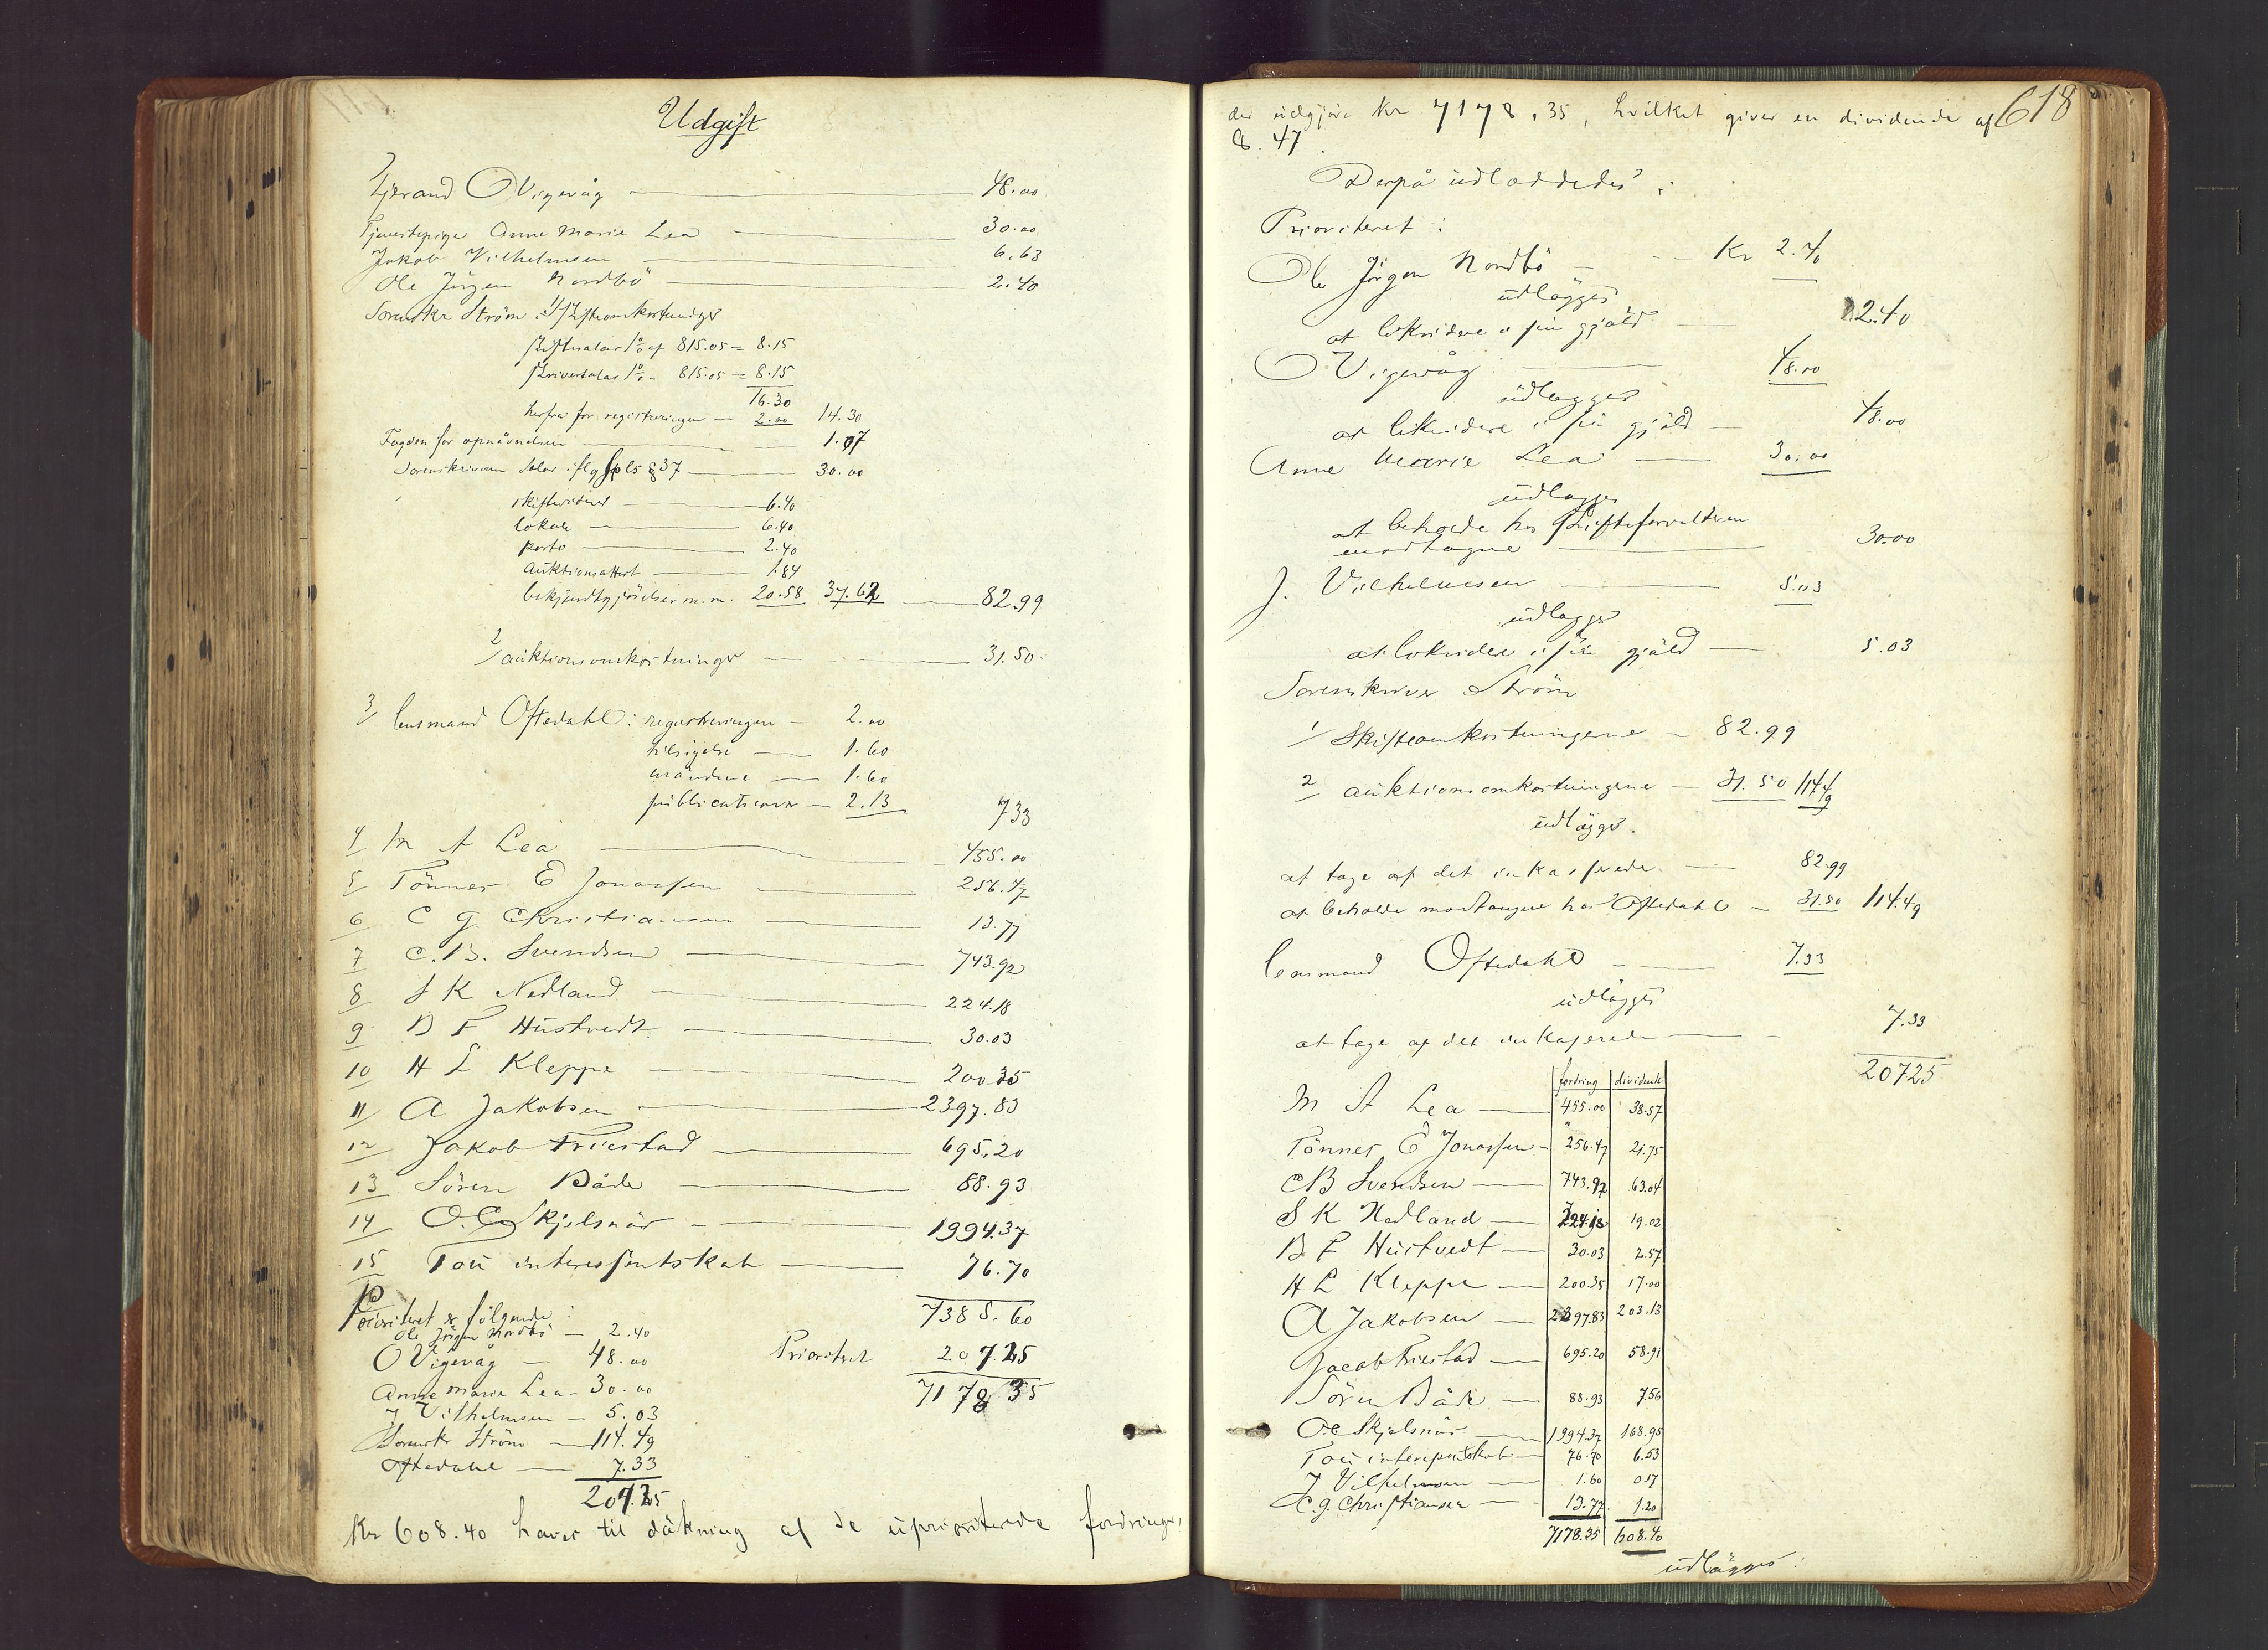 Udgift
Gjerand O Vigevåg — 48.00
Tjenestepige Anne Marie Lea — 30.00
Jakob Vilhelmsen — 6.63
Ole Jörgen Nordbö — 2.40
Sorenskr Ström: 1/ Skifteomkostninger
skiftesalar 1% af 815.05 = 8.15
skriversalar 1% - 815.05 = 8.15
16.30
herfra for registreringen — 2.00 14.30
Fogden for opnävnelsen — 1.07
Sorenskriveren salar iflg spls § 37 — 30.00
skiftevidner — 6.40
lokale — 6.40
porto — 2.40
auktionsattest — 1.84
bekjendtgjörelser m.m. 20.58 37.62 — 82.99
2/ auktionsomkostninger — 31.50
3/ lensmand Oftedahl: registreringen — 2.00
tilsigelse — 1.60
mändene — 1.60
publicationer — 2.13 733
4/ M A Lea — 455.00
5/ Tönnes E Jonassen — 256.47
6/ C G Christiansen — 13.77
7/ C.B. Svendsen — 743.92
8/ S K Nedland — 224.18
9/ B F Hustvedt — 30.03
10/ H L Kleppe — 200.35
11/ A Jakobsen — 2397.83
12/ Jakob Friestad — 695.20
13/ Sören Både — 88.93
14/ O.C. Skjelsnär — 1994.37
15/ Tou interessentskab — 76.70
7385.60
Prioriteret er fölgende:
Ole Jörgen Nordbö — 2.40
O Vigevåg — 48.00 Prioritet 207.25
Anne Marie Lea — 30.00 7178 35
J Vilhelmsen — 5.03
Sorenskr Ström — 114.49
Oftedahl — 7.33
207.25
Kr 608.40 haves til däkning af de uprioriterede fordringer,
618
der udgjör Kr 7178,35, hvilket giver en dividende af
8.47
Derpå udloddedes:
Prioriteret:
Ole Jörgen Nordbö — Kr 2.40
udlägges
at likvidere i sin gjäld — 2.40
O Vigevåg — 48.00
udlägges
at likvidere i sin gjäld — 48.00
Anne Marie Lea — 30.00
udlägges
at beholde hos skifteforvalteren
modtagne — 30.00
J. Vilhelmsen — 5.03
udlägges
at likvidere i sin gjäld — 5.03
Sorenskriver Ström
1/ Skifteomkostningerne — 82.99
2/ auktionsomkostningerne — 31.50 114.49
udlägges.
at tage af det inkasserede — 82.99
at beholde modtagne hos Oftedahl — 31.50 114.49
lensmand Oftedahl — 7.33
udlägges
at tage af det inkasserede — 7.33
207.25
fordring dividende
M A Lea — 455.00 38.57
Tönnes E Jonassen — 256.47 21.75
C B Svendsen — 743.92 63.04
S K Nedland — 224.18 19.02
B F Hustvedt — 30.03 2.57
H L Kleppe — 200.35 17.00
A Jakobsen — 2397.83 203.13
Jacob Friestad — 695.20 58.91
Sören Både — 88.93 7.56
O.C Skjelsnär — 1994.37 168.95
Tou interessentskab — 76.70 6.53
J Vilhelmsen — 1.60 0.17
C.G. Christiansen — 13.77 1.20
7178.35 608.40
udlägges: